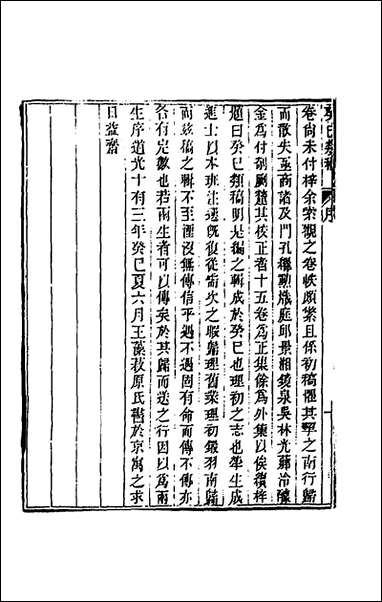 癸巳類稿 序 一
卷尙未付梓余索觀之卷帙頗繁且係初稿懼其挈之南行歸
而散失亟商諸及門孔繼勳熾庭邱景湘鏡泉吳林光蘇冶釀
金爲付剞劂釐其校正者十五卷爲正集餘爲外集以俟續梓
題曰癸巳類稿明是編之輯成於癸巳也理初之志也畢生成
進士以本班注選旣復從當次之暇歸理舊業理初鎩羽南歸
而茲稿之輯不至湮沒無傳信乎遇不遇固有命而傳不傳亦
各有定數也若兩生者可以傳矣於其歸而送之行因以爲兩
生序道光十有三年癸巳夏六月王藻菽原氏譔於京寓之求
日益齋